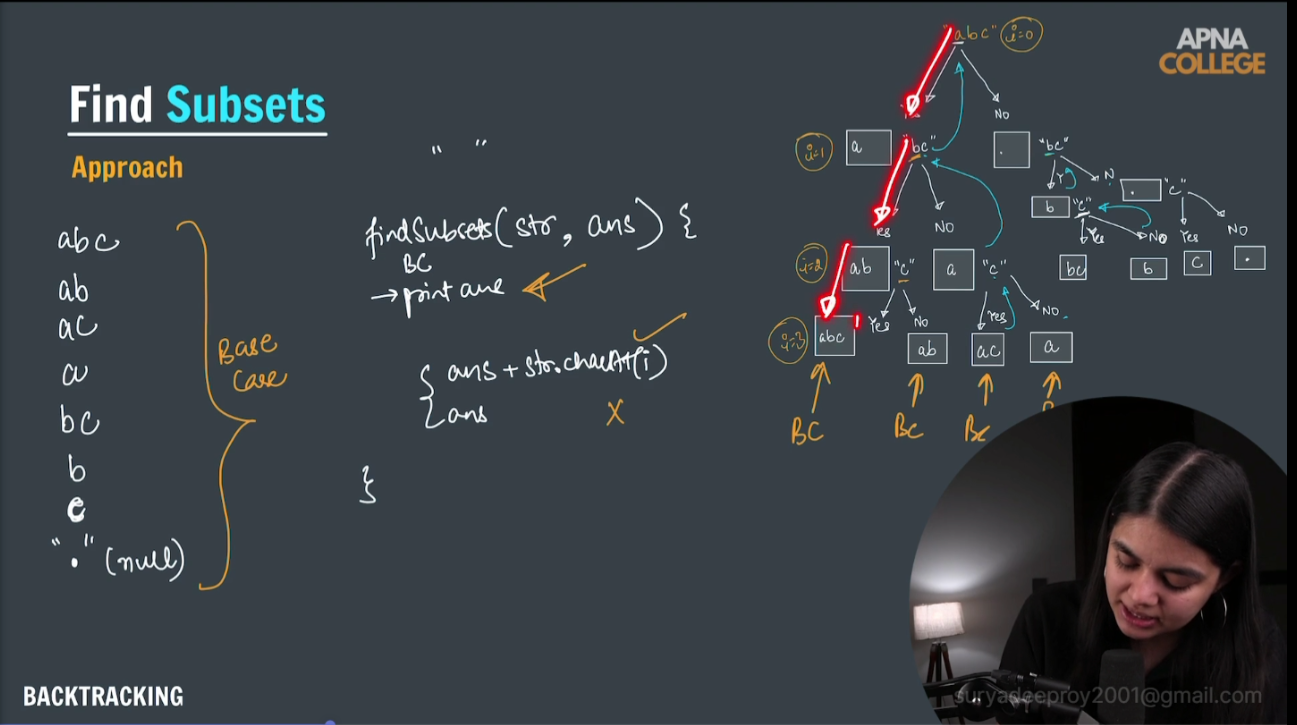 APNA
COLLEGE
Find Subsets
Approach
" "
abc
ab
ac
a
bc
b
c
"." (null)
Base
Case
findSubsets(str, ans) {
BC
→ print ans
{ ans + str.charAt(i)
ans X
}
"abc" i=0
No
i=1
a
"bc"
.
"bc"
Yes
NO
Y
N
b
"c"
.
"c"
Yes
No
Yes
NO
bc
b
c
.
i=2
ab
"c"
a
"c"
Yes
No
Yes
NO
i=3
abc
1
ab
ac
a
BC
BC
BC
BACKTRACKING
suryadeeproy2001@gmail.com